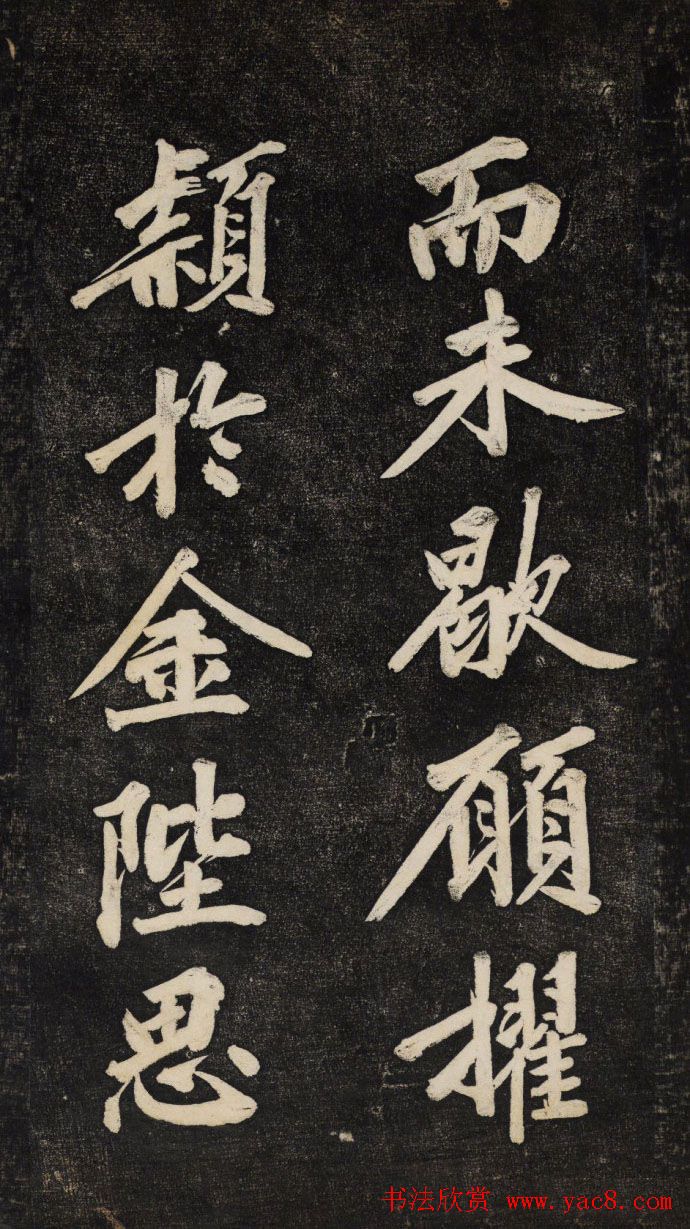 而未歇願擢
頴於金陛思
书法欣赏 www.yac8.com